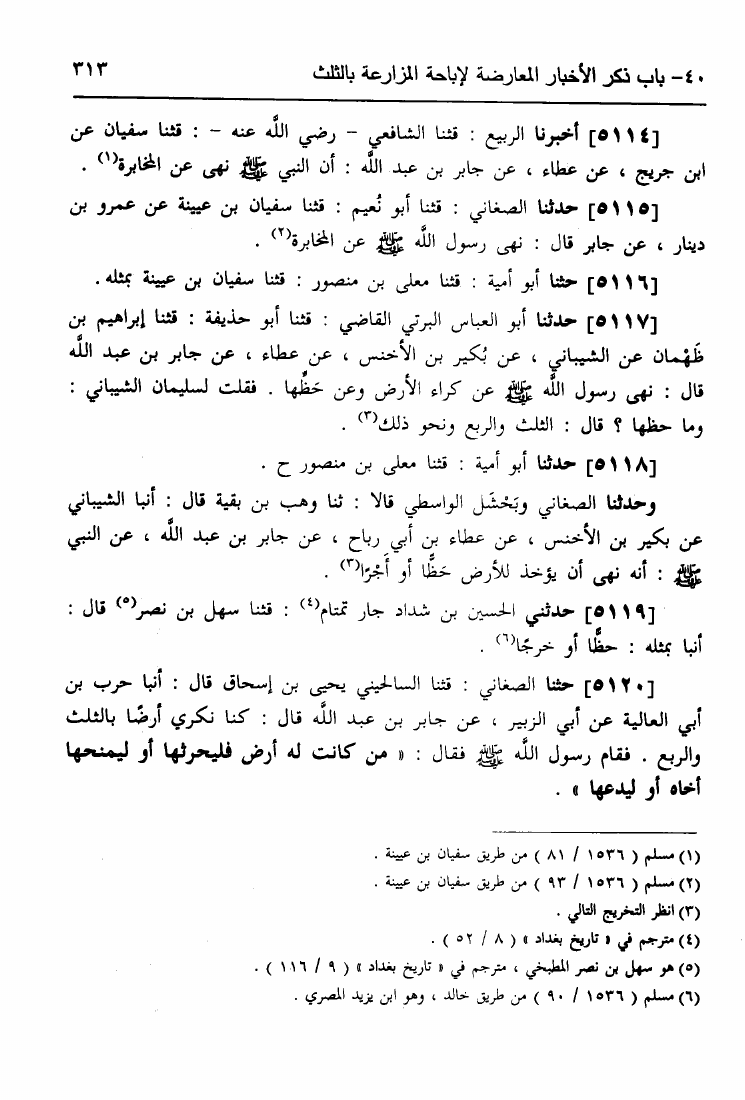 ٤٠- باب ذكر الأخبار المعارضة لإباحة المزارعة بالثلث ٣١٣
[٥١١٤] أخبرنا الربيع : قثنا الشافعي - رضي اللَّه عنه - : قثنا سفيان عن
ابن جريج ، عن عطاء ، عن جابر بن عبد اللَّه : أن النبي ﷺ نهى عن المخابرة(١) .
[٥١١٥] حدثنا الصغاني : قثنا أبو نُعيم : قثنا سفيان بن عيينة عن عمرو بن
دينار ، عن جابر قال : نهى رسول اللَّه ﷺ عن المخابرة(٢) .
[٥١١٦] حثنا أبو أمية : قثنا معلى بن منصور : قثنا سفيان بن عيينة بمثله.
[٥١١٧] حدثنا أبو العباس البرتي القاضي : قثنا أبو حذيفة : قثنا إبراهيم بن
طَهْمان عن الشيباني ، عن بُكير بن الأخنس ، عن عطاء ، عن جابر بن عبد اللَّه
قال : نهى رسول اللَّه ﷺ عن كراء الأرض وعن حَظِّها . فقلت لسليمان الشيباني :
وما حظها ؟ قال : الثلث والربع ونحو ذلك(٣) .
[٥١١٨] حدثنا أبو أمية : قثنا معلى بن منصور ح .
وحدثنا الصغاني وبَحْشَل الواسطي قالا : ثنا وهب بن بقية قال : أنبا الشيباني
عن بكير بن الأخنس ، عن عطاء بن أبي رباح ، عن جابر بن عبد اللَّه ، عن النبي
ﷺ : أنه نهى أن يؤخذ للأرض حَظًّا أو أَجْرًا(٣) .
[٥١١٩] حدثني الحسين بن شداد جار تمتام(٤) : قثنا سهل بن نصر(٥) قال :
أنبا بمثله : حظًّا أو خرجًا(٦) .
[٥١٢٠] حثنا الصغاني : قثنا السالحيني يحيى بن إسحاق قال : أنبا حرب بن
أبي العالية عن أبي الزبير ، عن جابر بن عبد اللَّه قال : كنا نكري أرضًا بالثلث
والربع . فقام رسول اللَّه ﷺ فقال : « من كانت له أرض فليحرثها أو ليمنحها
أخاه أو ليدعها » .
(١) مسلم ( ١٥٣٦ / ٨١ ) من طريق سفيان بن عيينة .
(٢) مسلم ( ١٥٣٦ / ٩٣ ) من طريق سفيان بن عيينة .
(٣) انظر التخريج التالي .
(٤) مترجم في « تاريخ بغداد » ( ٨ / ٥٢ ) .
(٥) هو سهل بن نصر المطبخي ، مترجم في « تاريخ بغداد » ( ٩ / ١١٦ ) .
(٦) مسلم ( ١٥٣٦ / ٩٠ ) من طريق خالد ، وهو ابن يزيد المصري .